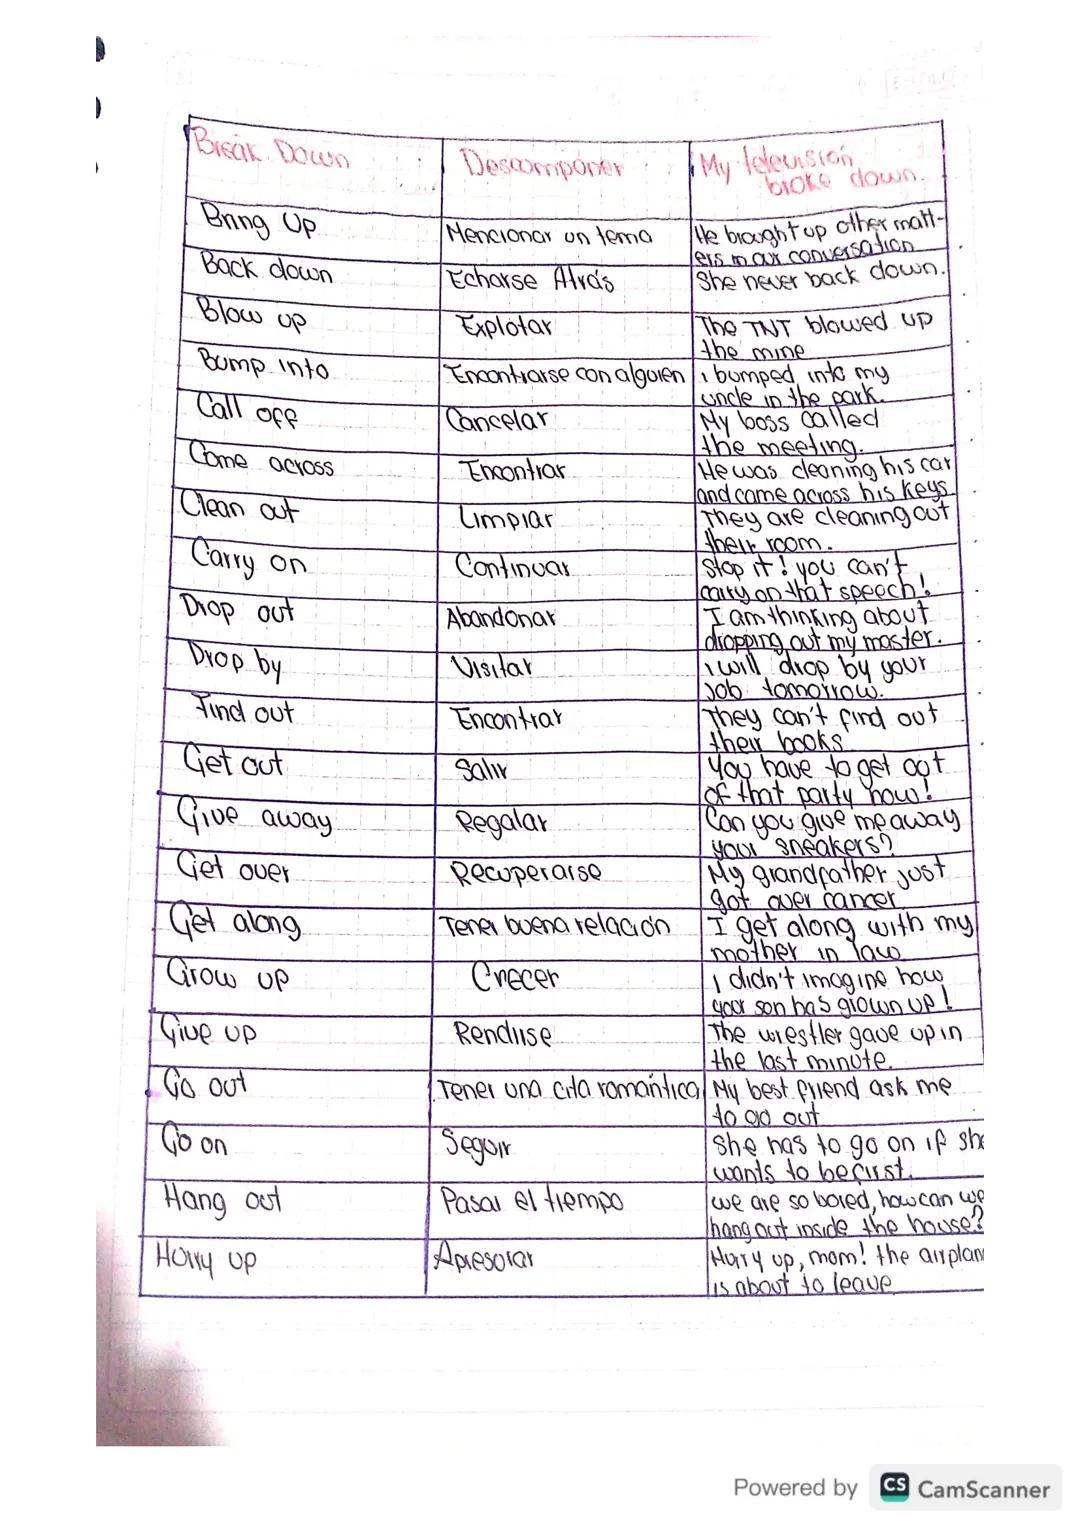 Break Down
Descomponer
My television
broke down.
Bring Up
Mencionar un tema
He brought up other matt-
ers in our conversation
Back down
Echarse Atrás
She never back down.
Blow up
Explotar
The TNT blowed up
the mine
Bump into
Encontrarse con alguien
I bumped into my
uncle in the park.
Call off
Cancelar
My boss called
the meeting.
Come across
Encontrar
He was cleaning his car
and came across his keys
Clean out
Limpiar
They are cleaning out
their room.
Carry on
Continuar
Stop it! you can't
carry on that speech!
Drop out
Abandonar
I am thinking about
dropping out my master.
Drop by
Visitar
I will drop by your
job tomorrow.
Find out
Encontrar
They can't find out
their books
Get out
Salir
You have to get out
of that party now!
Give away
Regalar
Can you give me away
your sneakers?
Get over
Recuperarse
My grandfather just
got over cancer
Get along
Tener buena relación
I get along with my
mother in law
Grow up
Crecer
I didn't imagine how
your son has grown up!
Give up
Rendirse
The wrestler gave up in
the last minute.
Go out
Tener una cita romántica
My best friend ask me
to go out
Go on
Seguir
She has to go on if she
wants to be first.
Hang out
Pasar el tiempo
we are so bored, how can we
hang out inside the house?
Hurry up
Apresorar
Hurry up, mom! the airplan
is about to leave
Powered by CS CamScanner